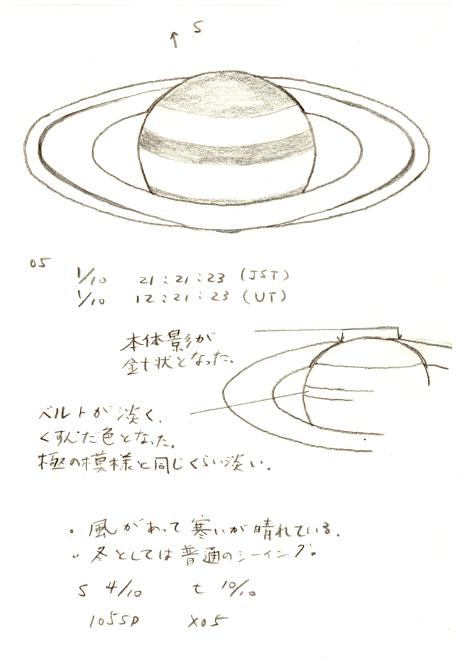 ↑ S
05
1/10 21:21:23 (JST)
1/10 12:21:23 (UT)
本体影が
針状となった.
ベルトが淡く.
くすんだ色となった.
極の模様と同じくらい淡い.
・風があって寒いが晴れている.
・冬としては普通のシーイング。
S 4/10 t 10/10
105SD X05